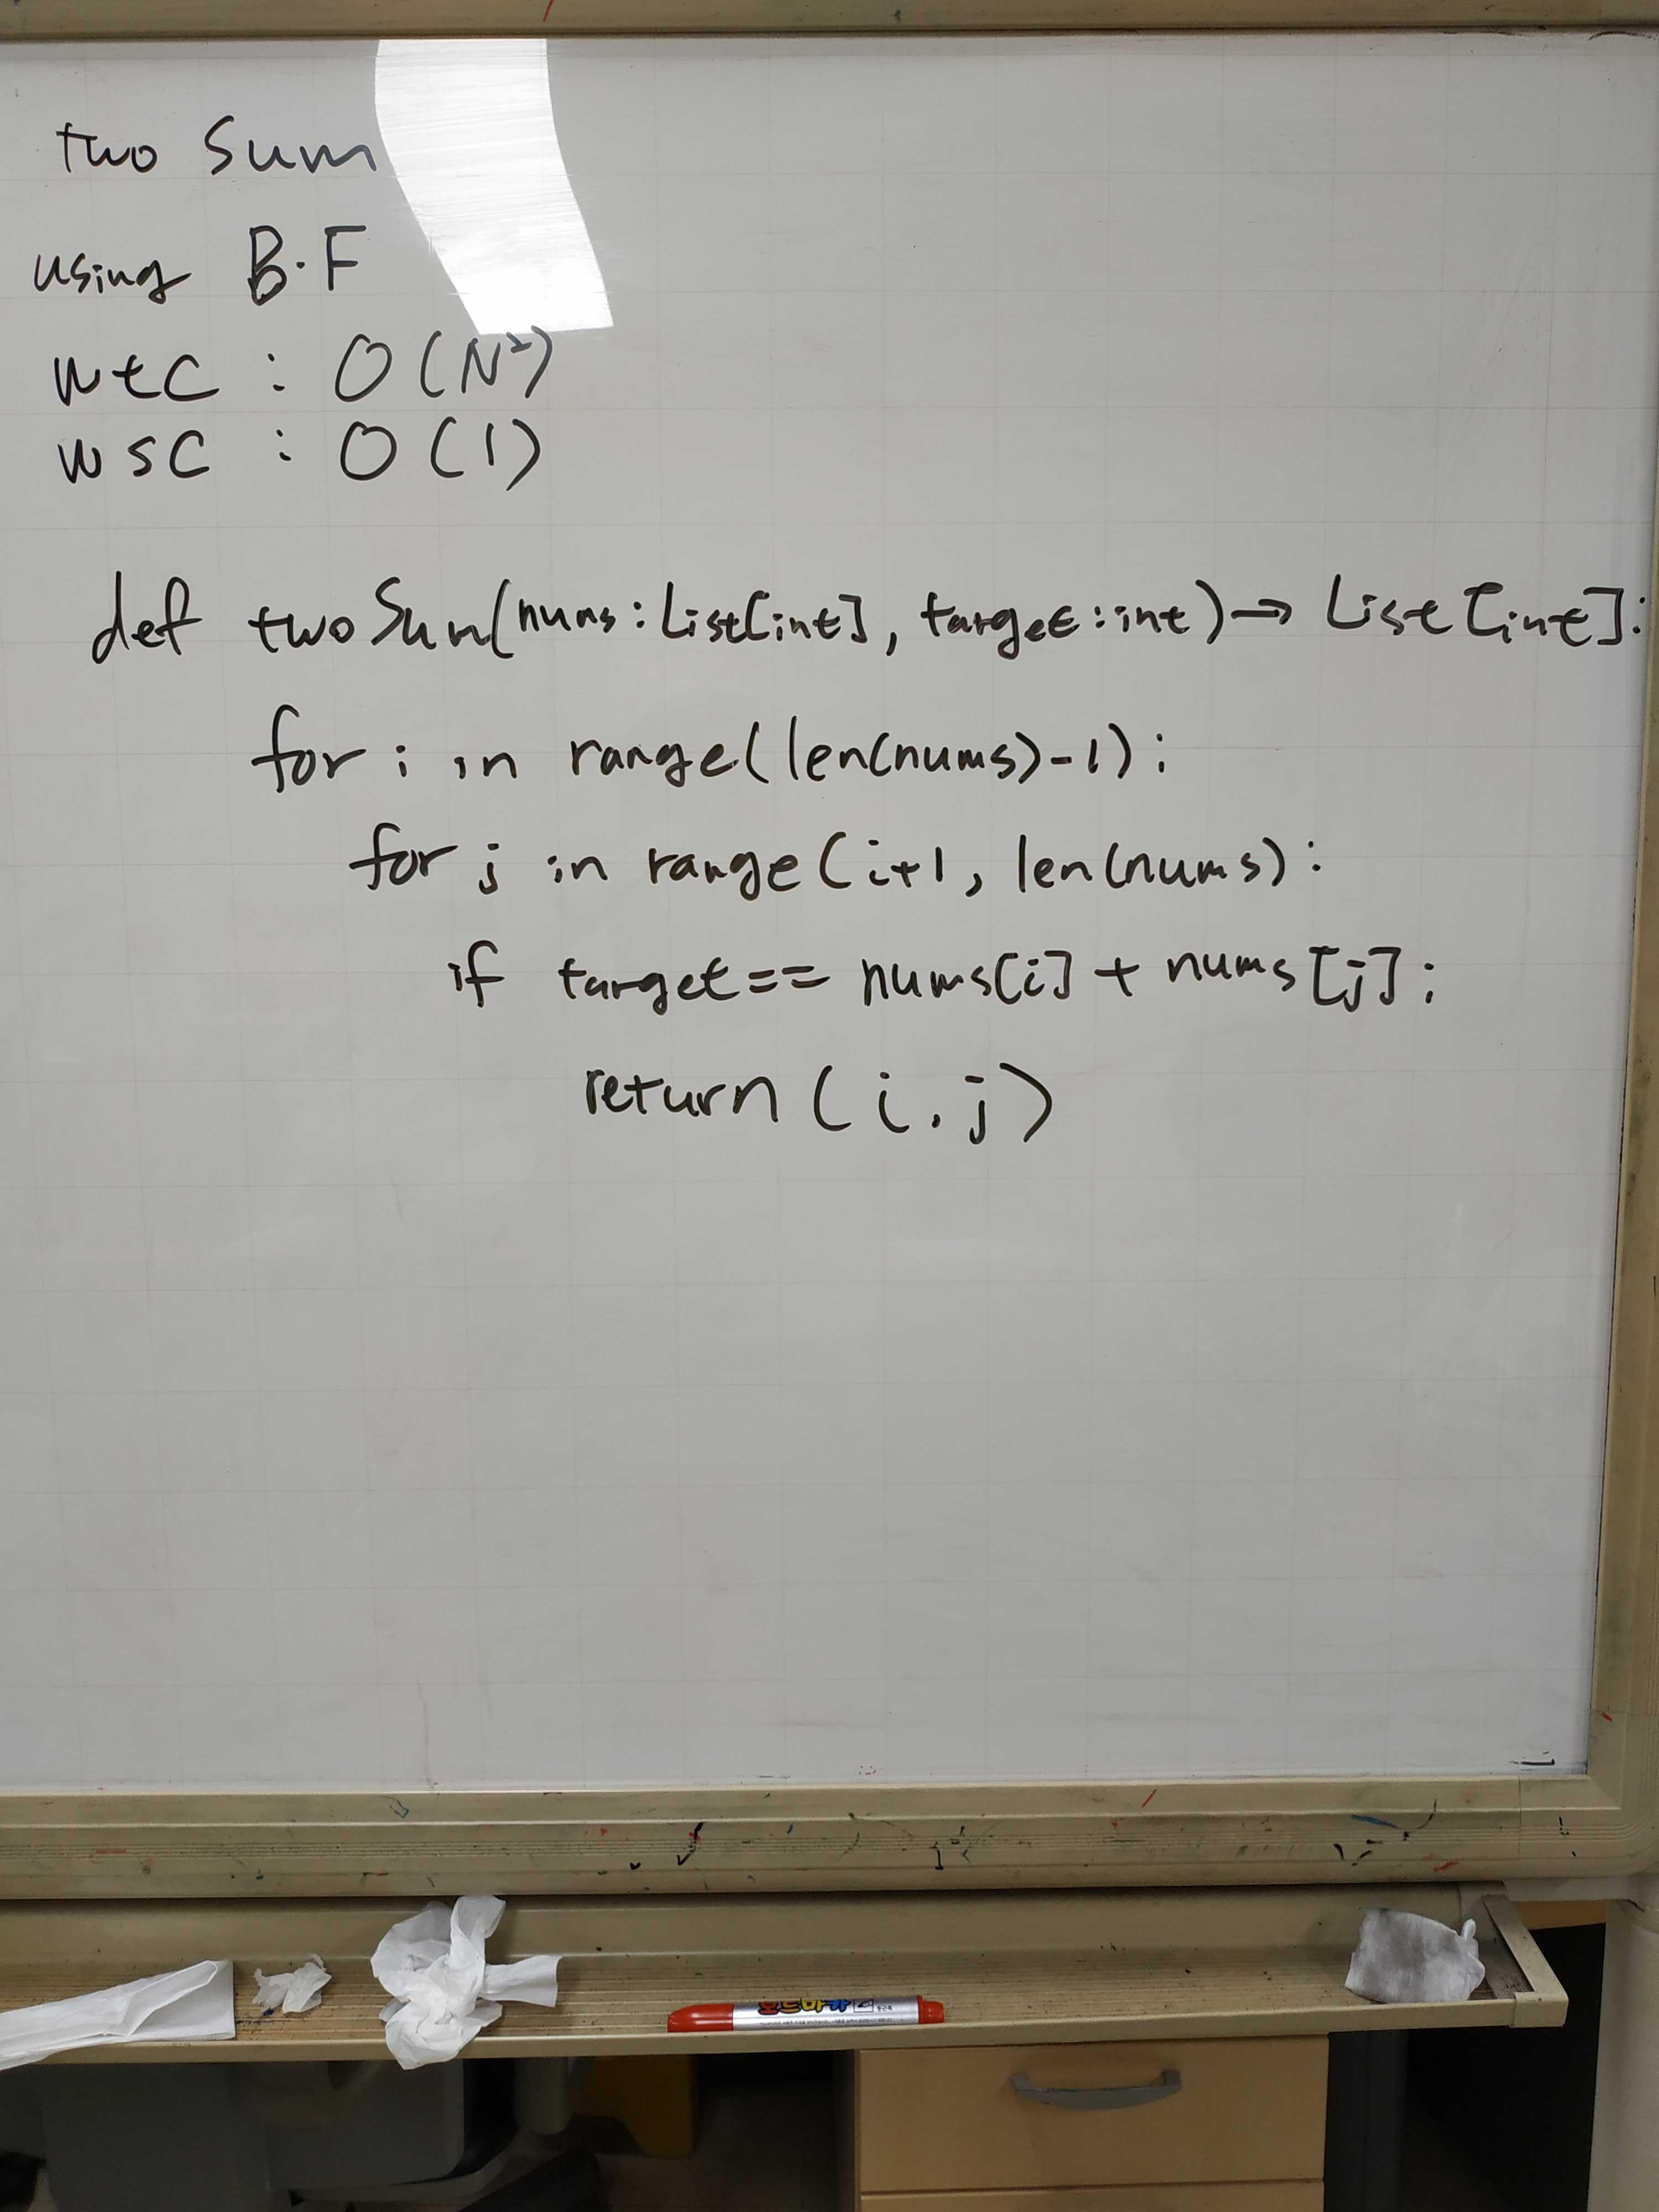 two Sum
using B.F
wtc : O(N²)
wsc : O(1)
def twoSum(nums:List[int], target:int)→ List[int]:
for i in range(len(nums)-1):
for j in range(i+1, len(nums):
if target== nums[i] + nums[j]:
return(i,j)
보드마카